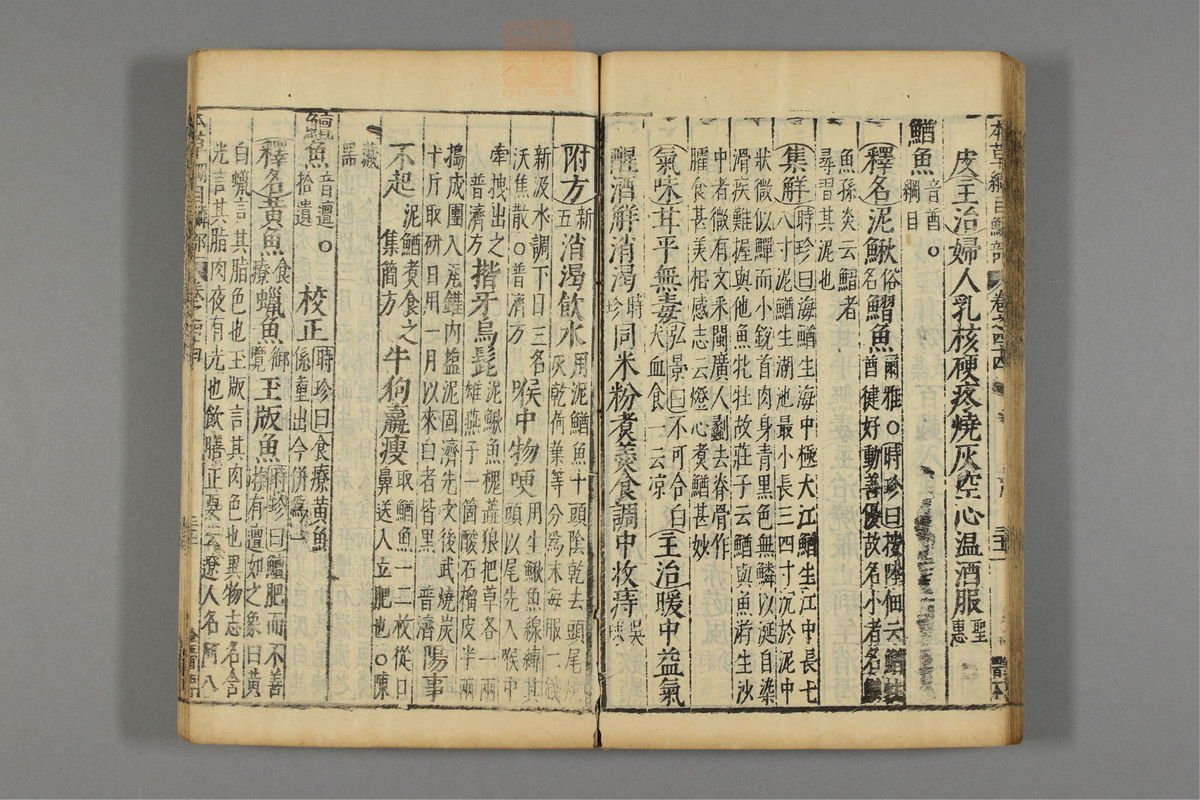 本草綱目鱗部 卷之四十四
皮主治婦人乳核硬疼燒灰空心温酒服聖惠
鰌魚音酋。綱目
釋名泥鰍俗名鰼魚爾雅○時珍曰按陸佃云鰌性酋健好動善優故名小者名
魚孫炎云鰼者尋習其泥也
集解時珍曰海鰌生海中極大江鰌生江中長七
八寸泥鰌生湖池最小長三四寸沉於泥中
狀微似鱓而小銳首肉身青黑色無鱗以涎自染
滑疾難握與他魚牝牡故莊子云鰌與魚游生沙
中者微有文采閩廣人劙去脊骨作
臛食甚美相感志云燈心煮鰌甚妙
氣味甘平無毒弘景曰不可合白犬血食一云凉主治暖中益氣
醒酒解消渴時珍同米粉煮羹食調中收痔吳
附方新五消渴飲水用泥鰌魚十頭陰乾去頭尾灰乾荷葉等分爲末每服二錢
新汲水調下日三名沃焦散○普濟方喉中物哽用生鰍魚線縛其頭以尾先入喉中
牽拽出之普濟方揩牙烏髭泥鰍魚槐蕋狼把草各一兩雄燕子一箇酸石榴皮半兩
搗成團入瓦鑵内鹽泥固濟先文後武燒炭
十斤取研日用一月以來白者皆黑普濟陽事
不起泥鰌煮食之集簡方牛狗羸瘦取鰌魚一二枚從口鼻送入立肥也○陳
藏器
鱣魚音邅。拾遺校正時珍曰食療黄魚係重出今併爲一
釋名黄魚食療蠟魚御覽玉版魚時珍曰鱣肥而不善游有邅如之象曰黄
白蠟言其脂色也玉版言其肉色也異物志名含
光言其脂肉夜有光也飲膳正要云遼人名阿八
本草綱目鱗部 卷之四十四